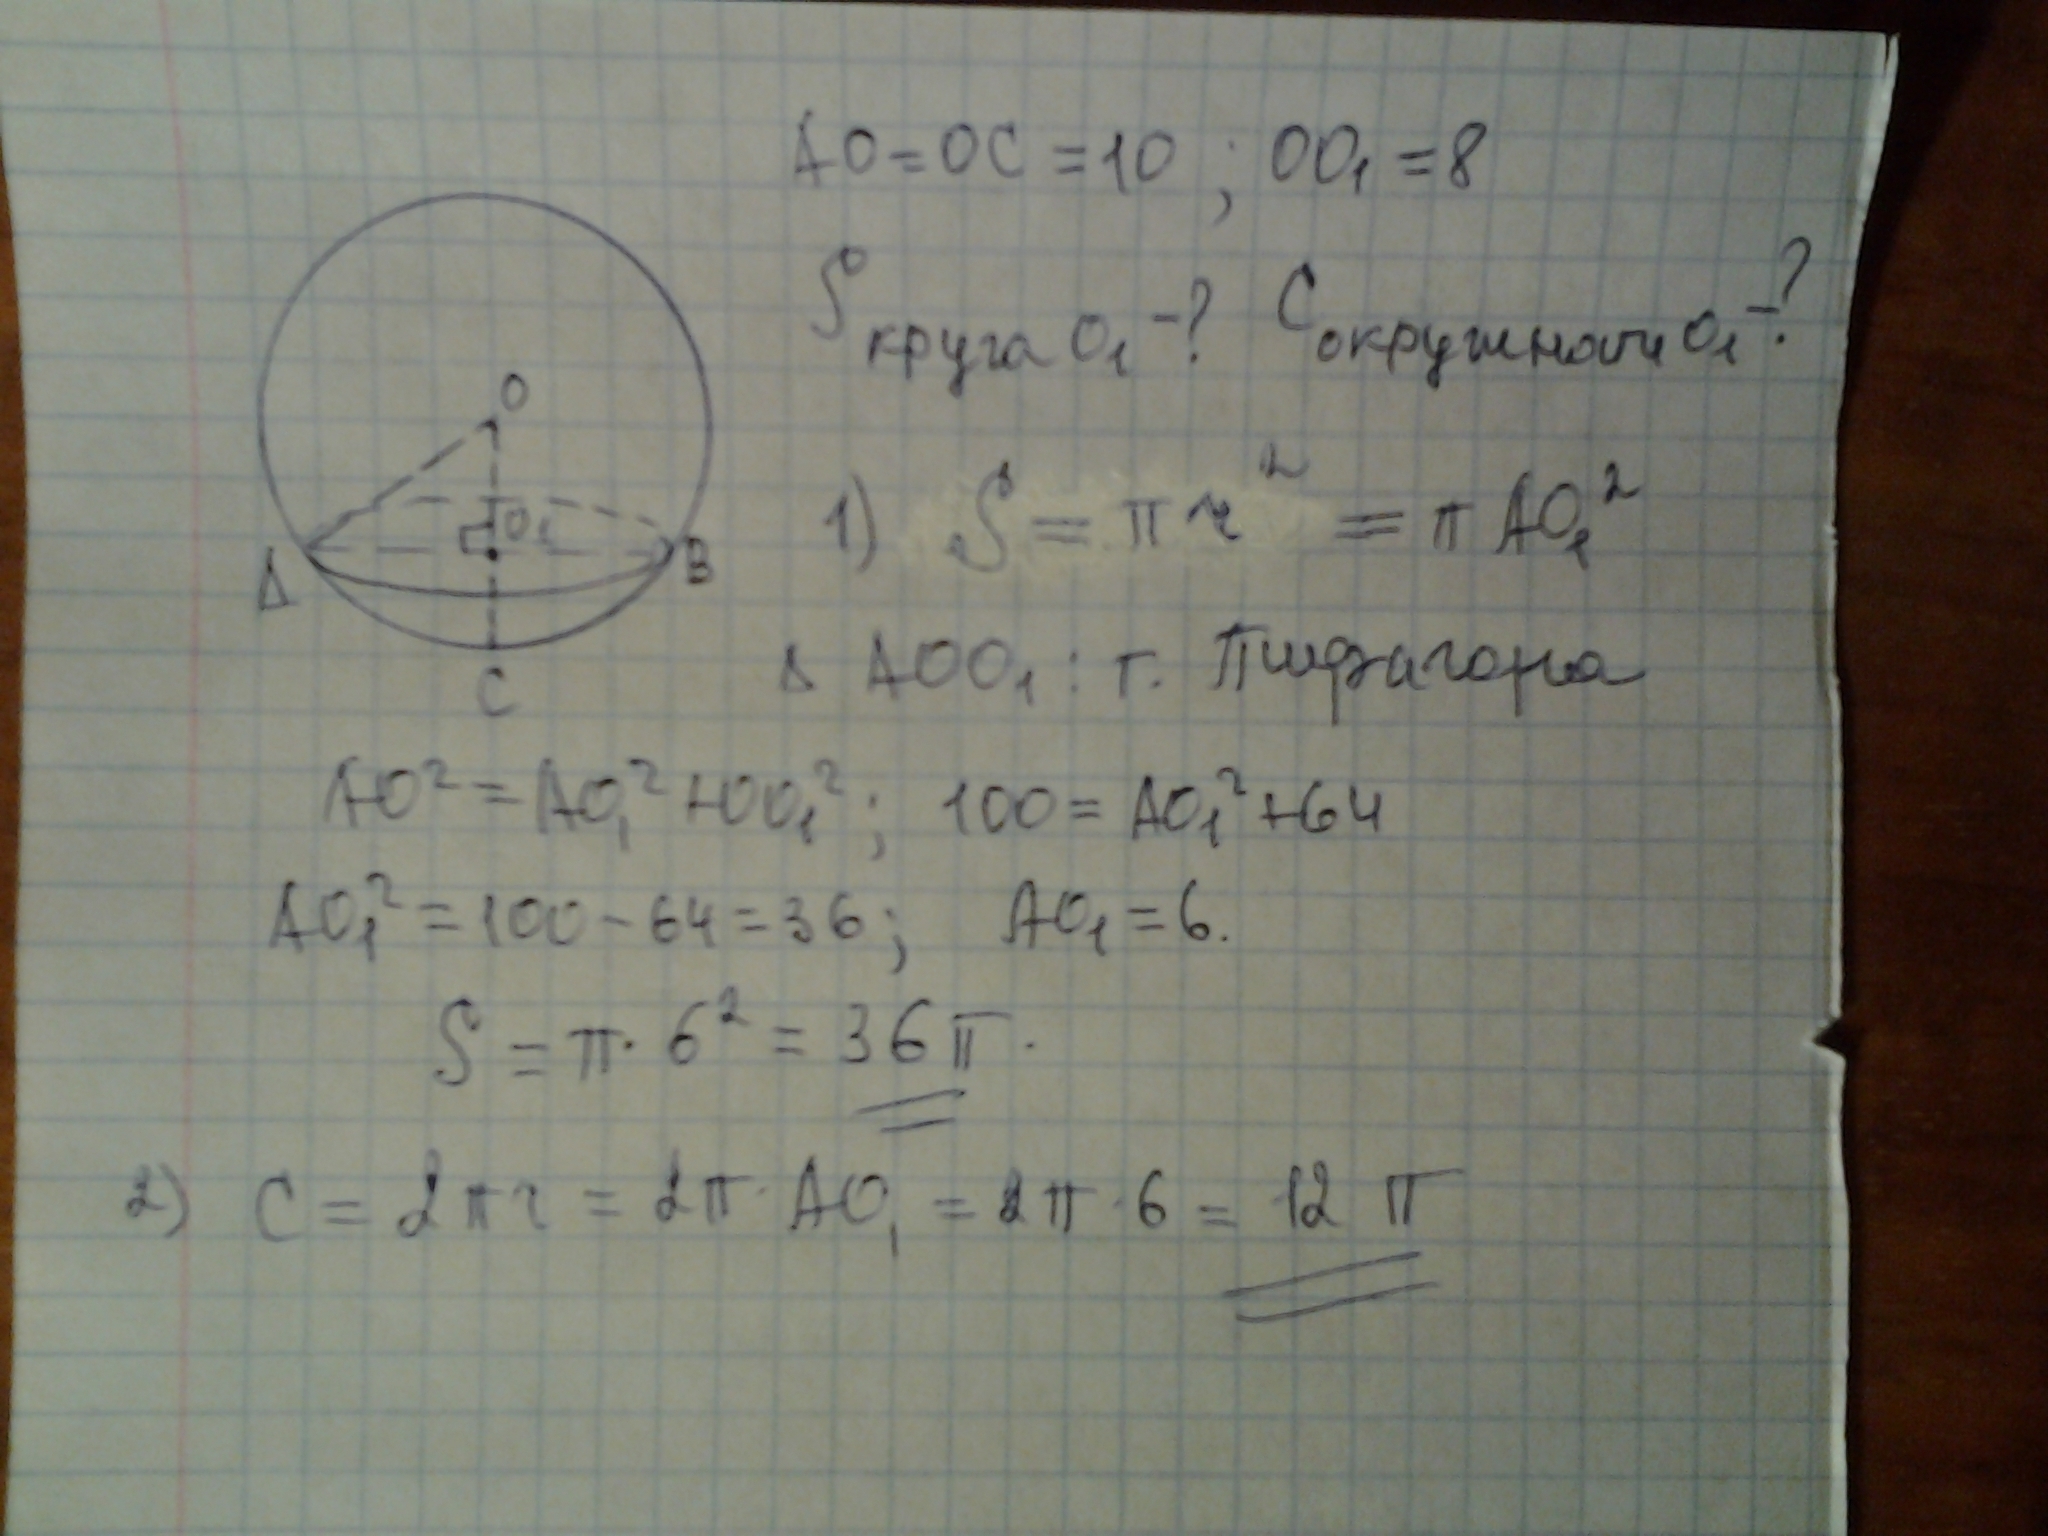 AO=OC=10 ; OO₁=8
S круга O₁ -? C окружности O₁ -?
O
O₁
A
B
C
1) S = πr² = πAO₁²
Δ AOO₁ : т. Пифагора
AO² = AO₁² + OO₁² ; 100 = AO₁² + 64
AO₁² = 100 - 64 = 36 ; AO₁ = 6.
S = π · 6² = 36π.
2) C = 2πr = 2π · AO₁ = 2π · 6 = 12 π